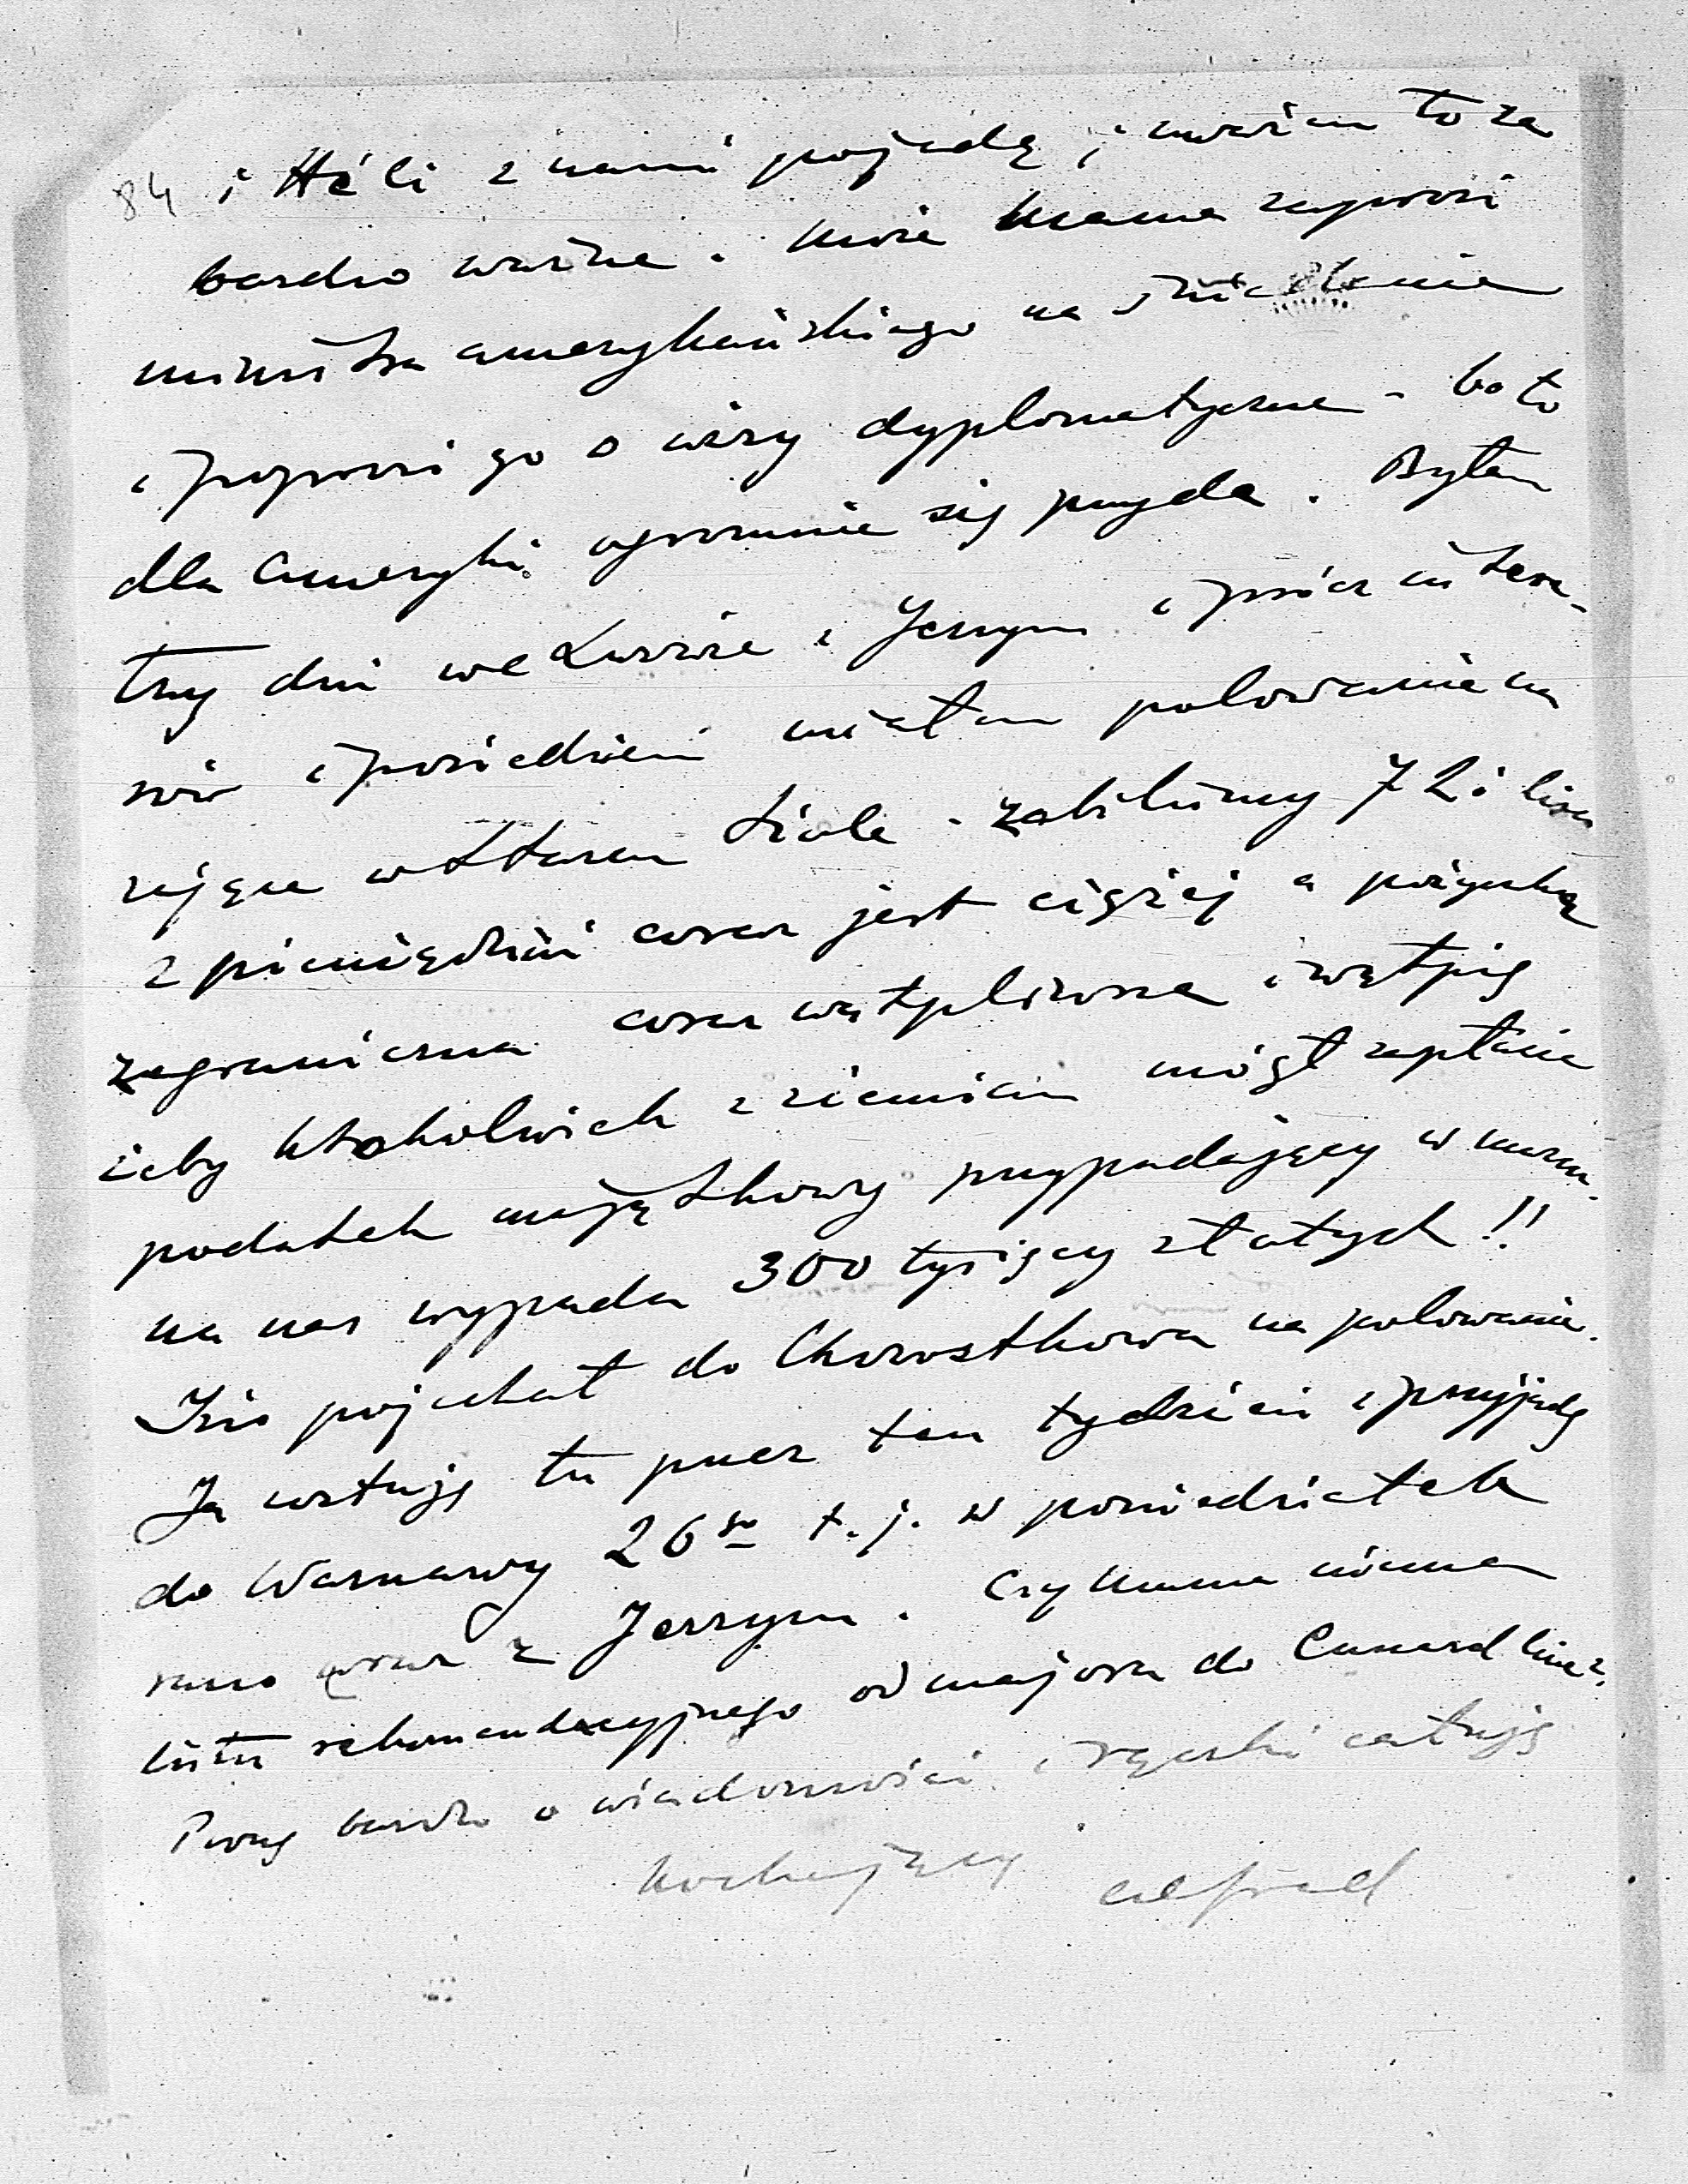 84 i Héli z nami pojadą, i uważam to za
bardzo ważne. Może Mama zaprosi
ministra amerykańskiego na śniadanie
i poprosi go o wizy dyplomatyczne - bo to
dla Ameryki ogromnie się przyda. Byłem
trzy dni we Lwowie z Jerzym i prócz intere-
sów i posiedzeń miałem polowanie na
zające w Starem Siole - zabiliśmy 72 i lisa
z pieniędzmi coraz jest ciężej a pożyczka
zagraniczna coraz wątpliwsza i wątpię
żeby ktokolwiek z ziemian mógł zapłacić
podatek majątkowy przypadający w marcu.
na nas wypada 300 tysięcy złotych!!
Izio pojechał do Chorostkowa na polowanie.
Ja zostaję tu przez ten tydzień i przyjadę
do Warszawy 26go t. j. w poniedziałek
rano wraz z Jerzym. Czy Mama niema
listu rekomendacyjnego od majora do Cunard line?
Proszę bardzo o wiadomości i rączki całuję
kochający Alfred